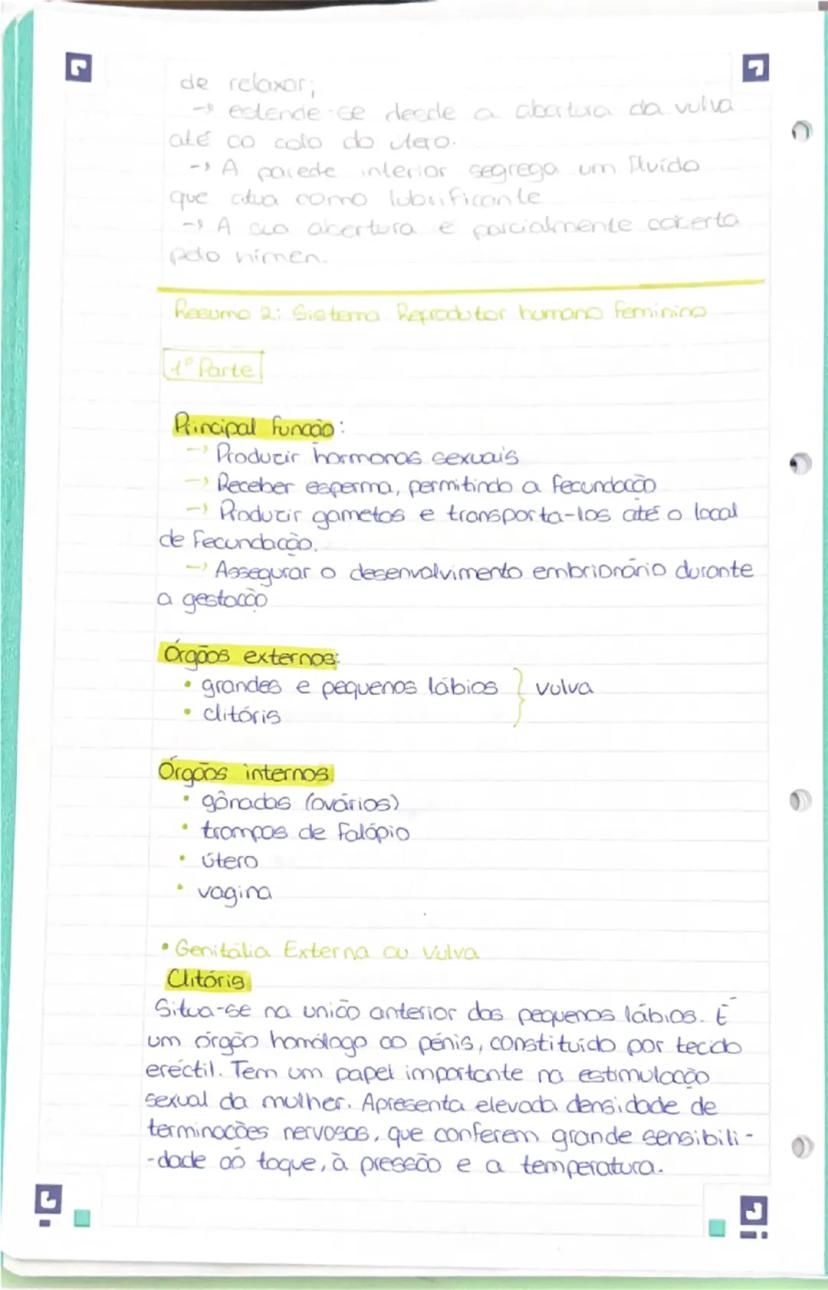 de relaxar;
→ estende-se desde a abertura da vulva
até ao colo do útero.
→ A parede interior segrega um fluido
que atua como lubrificante
→ A sua abertura é parcialmente coberta
pelo hímen.
Resumo 2: Sistema Reprodutor humano Feminino
1º Parte
Principal função:
→ Produzir hormonas sexuais
→ Receber esperma, permitindo a fecundação
→ Produzir gametos e transporta-los até o local
de fecundação.
→ Assegurar o desenvolvimento embrionário durante
a gestação
Órgãos externos:
• grandes e pequenos lábios } vulva
• clitóris
Órgãos internos:
• gônadas (ovários)
• trompas de falópio
• útero
• vagina
• Genitália Externa ou Vulva
Clitóris
Situa-se na união anterior dos pequenos lábios. É
um órgão homólogo ao pénis, constituído por tecido
eréctil. Tem um papel importante na estimulação
sexual da mulher. Apresenta elevada densidade de
terminações nervosas, que conferem grande sensibili-
-dade ao toque, à pressão e a temperatura.